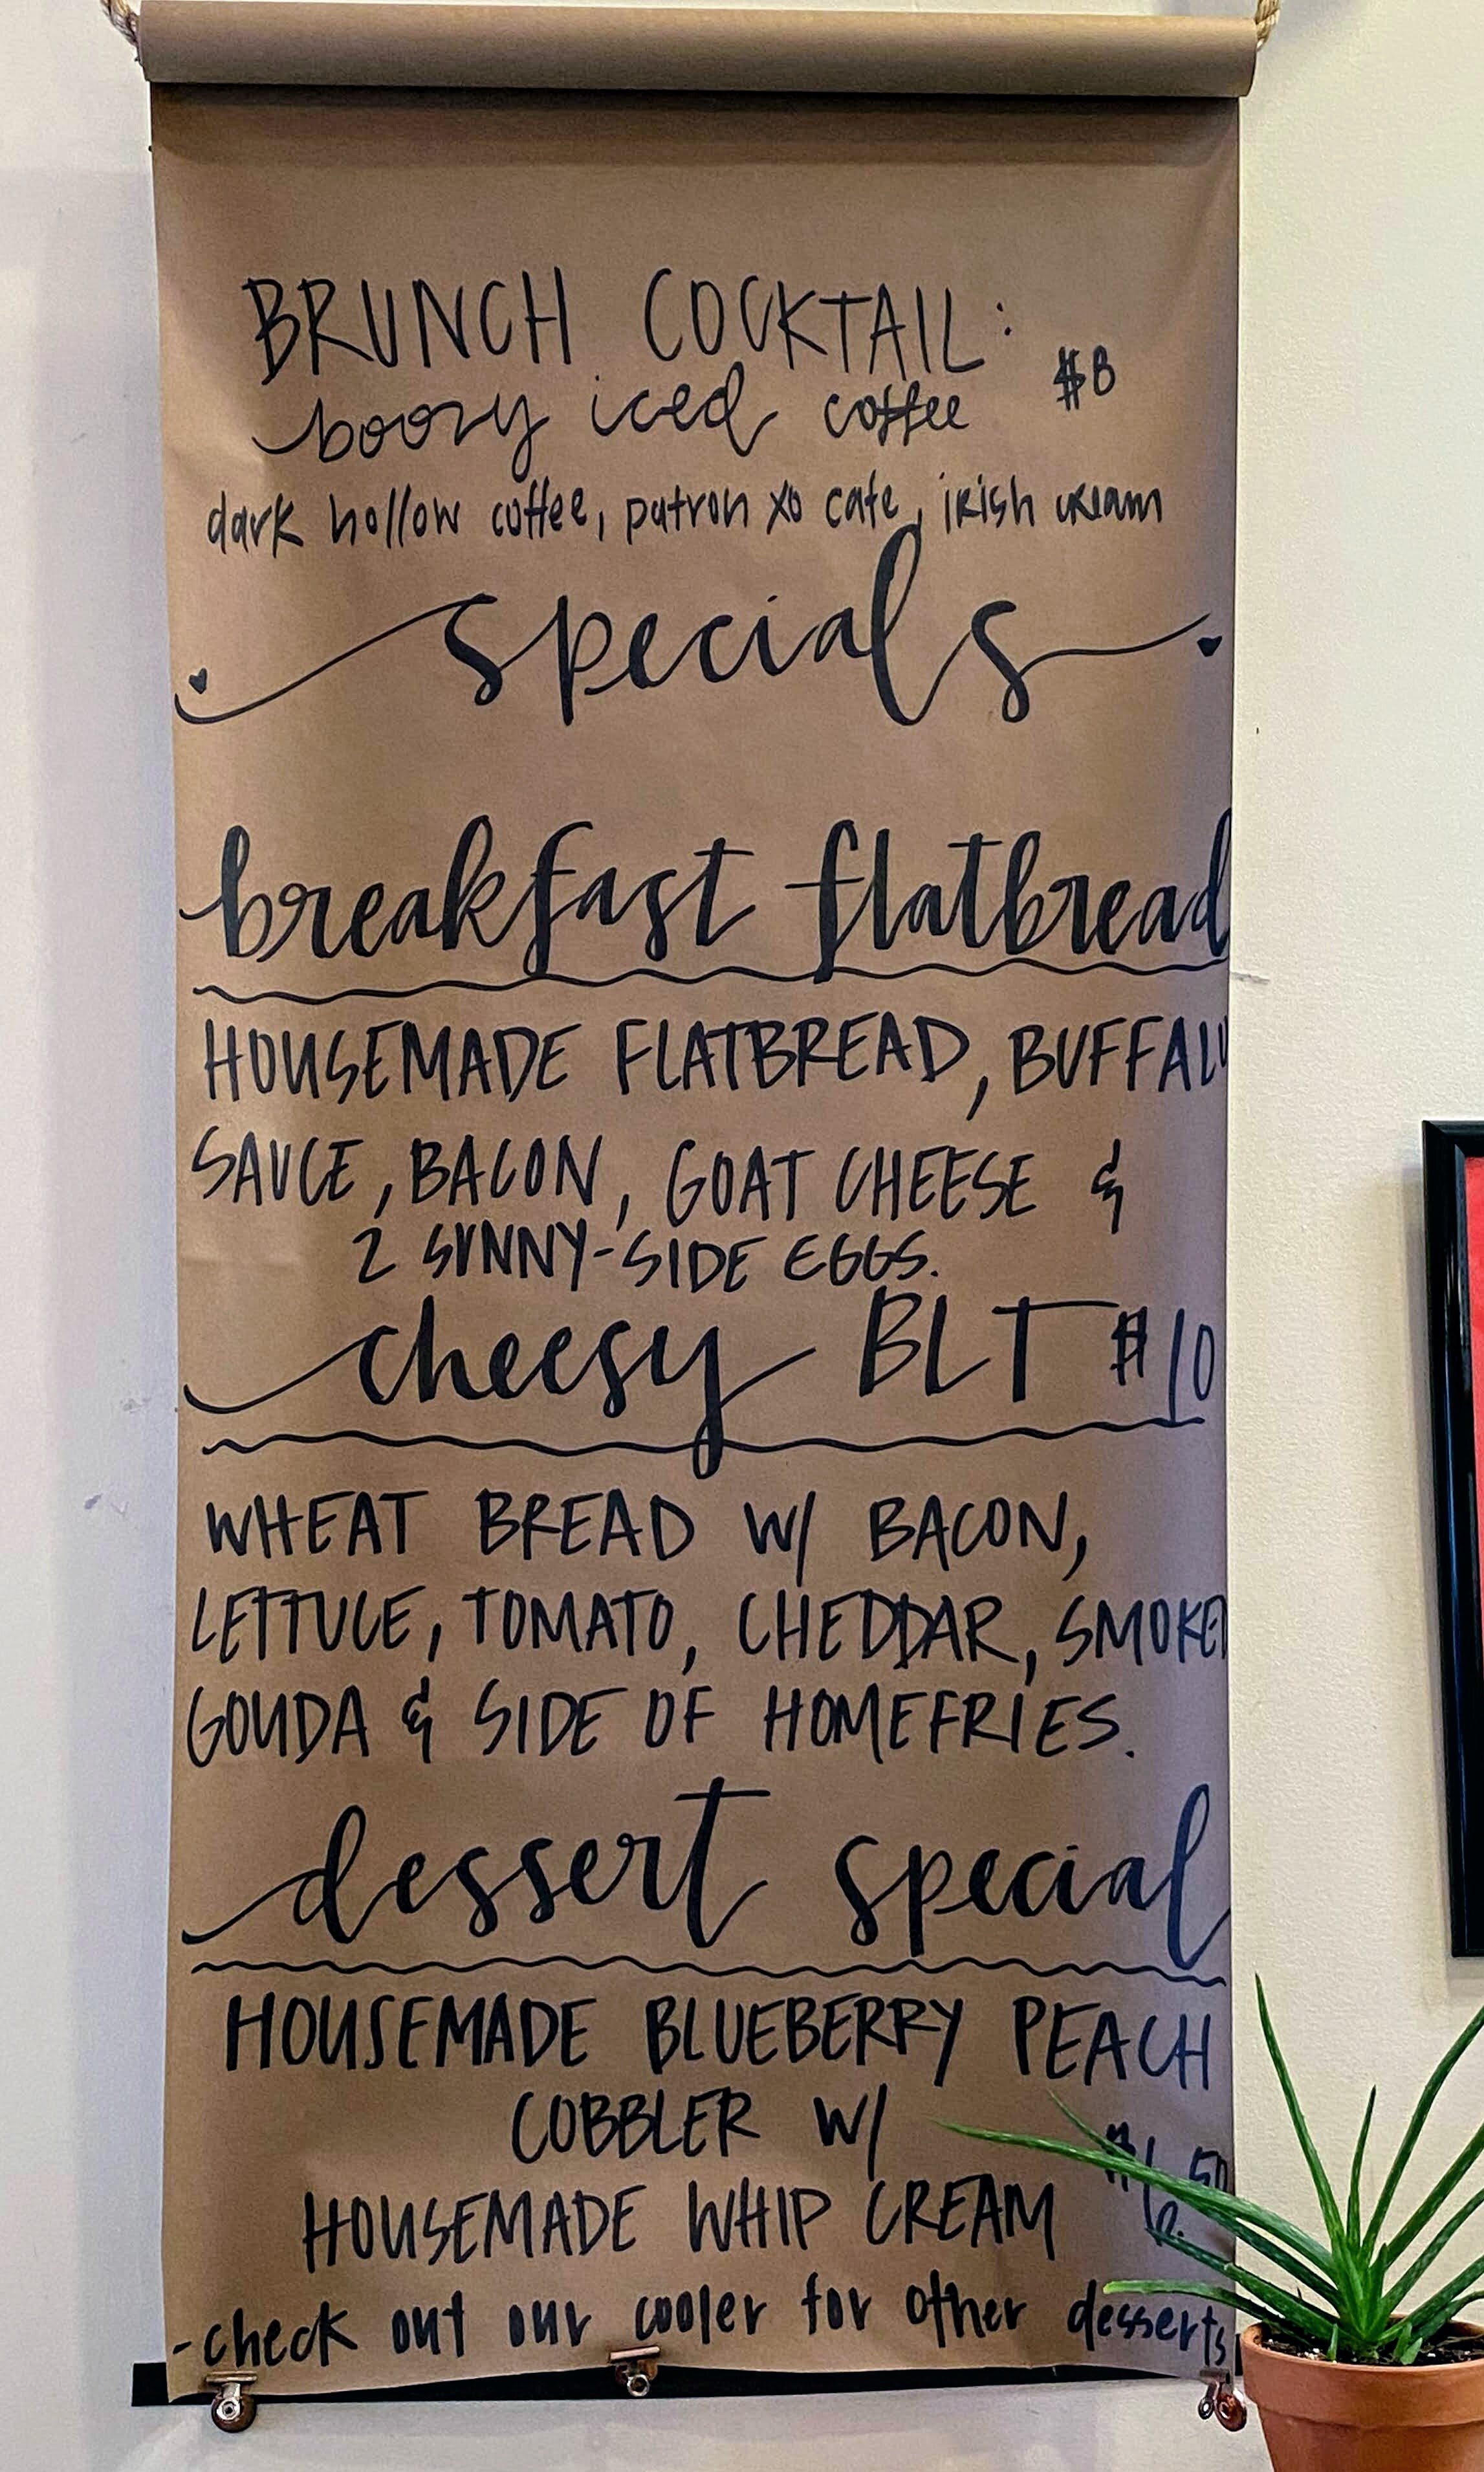 BRUNCH COCKTAIL:
boozy iced coffee $8
dark hollow coffee, patron xo cafe, irish cream
specials
breakfast flatbread
HOUSEMADE FLATBREAD, BUFFALO
SAUCE, BACON, GOAT CHEESE &
2 SUNNY-SIDE EGGS.
cheesy BLT $10
WHEAT BREAD W/ BACON,
LETTUCE, TOMATO, CHEDDAR, SMOKED
GOUDA & SIDE OF HOMEFRIES.
dessert special
HOUSEMADE BLUEBERRY PEACH
COBBLER W/
HOUSEMADE WHIP CREAM $6.50
-check out our cooler for other desserts